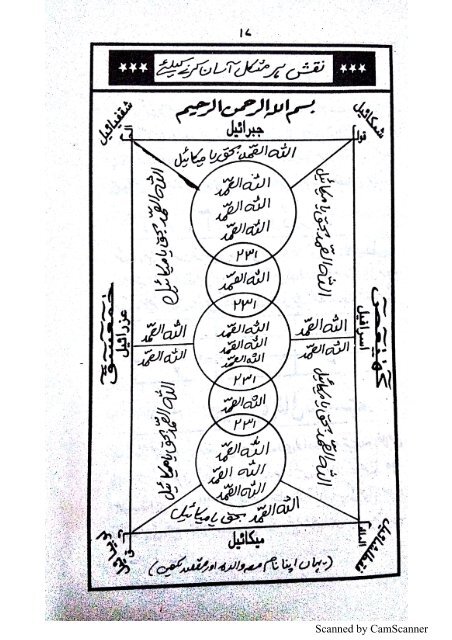 ۱۷
*** نقش ہر مشکل آسان کرنے کیلئے ***
بسم اللہ الرحمن الرحیم
جبرائیل
اللہ الصمد بحق یا میکائیل
اللہ الصمد
اللہ الصمد
اللہ الصمد
۲۳۱
اللہ الصمد
۲۳۱
اللہ الصمد
اللہ الصمد
اللہ الصمد
۲۳۱
اللہ الصمد
۲۳۱
اللہ الصمد
اللہ الصمد
اللہ الصمد
اللہ الصمد بحق یا میکائیل
اللہ الصمد بحق یا میکائیل
اللہ الصمد بحق یا میکائیل
اللہ الصمد
اللہ الصمد
اللہ الصمد
اللہ الصمد
اللہ الصمد بحق یا میکائیل
اللہ الصمد بحق یا میکائیل
اسرافیل
کھیعص
عزرائیل
حمعسق
اللہ الصمد بحق یا میکائیل
میکائیل
(یہاں اپنا نام مع والدہ اور مقصد لکھیں)
Scanned by CamScanner